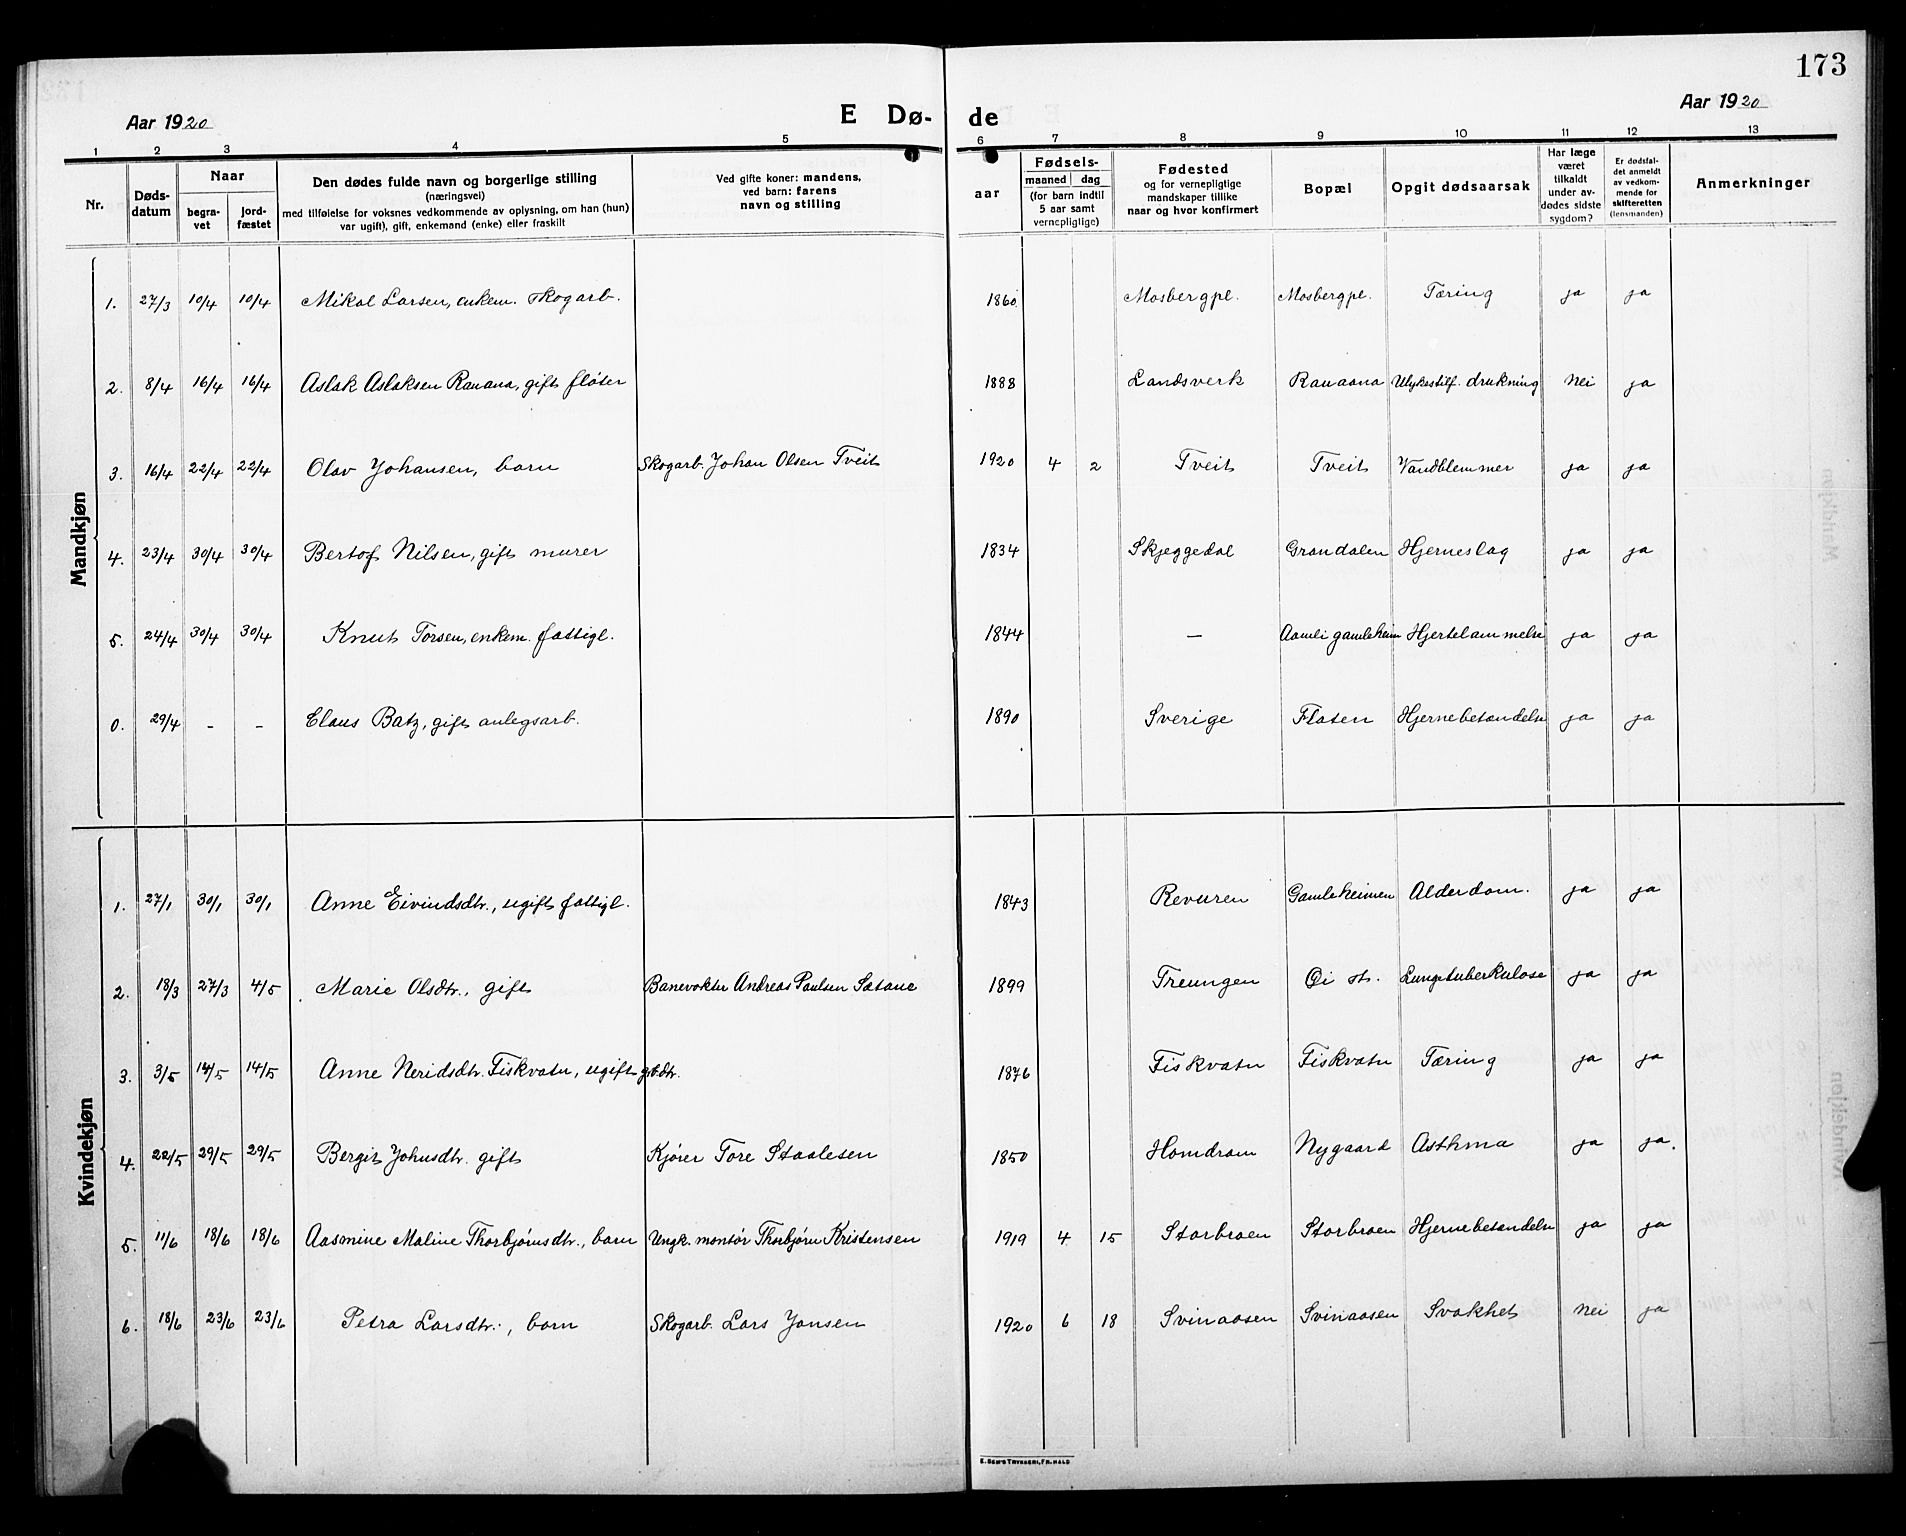 173
Aar 1920
E Dø-
de
Aar 1920
1 2 3 4 5 6 7 8 9 10 11 12 13
Nr.
Døds-
datum
Naar
begra-
vet
jord-
fæstet
Den dødes fulde navn og borgerlige stilling
(næringsvei)
med tilføielse for voksnes vedkommende av oplysning, om han (hun)
var ugift), gift, enkemand (enke) eller fraskilt
Ved gifte koner: mandens,
ved barn: farens
navn og stilling
aar
Fødsels-
maaned dag
(for barn indtil
5 aar samt
vernepligtige)
Fødested
og for vernepligtige
mandskaper tillike
naar og hvor konfirmert
Bopæl
Opgit dødsaarsak
Har læge
været
tilkaldt
under av-
dødes sidste
sygdom?
Er dødsfal-
det anmeldt
av vedkom-
mende for
skifteretten
(lensmanden)
Anmerkninger
Mandkjøn
1. 27/3 10/4 10/4 Mikal Larsen, enkem. skogarb. 1860 Mosbergpl. Mosbergpl. Tæring ja ja
2. 8/4 16/4 16/4 Aslak Aslaksen Rauana, gift fløter 1888 Landsverk Rauaana Ulykkestilf. drukning nei ja
3. 16/4 22/4 22/4 Olav Johansen, barn Skogarb. Johan Olsen Tveit 1920 4 2 Tveit Tveit Vandblemmer ja ja
4. 23/4 30/4 30/4 Nilsen, gift murer 1834 Skjeggedal Grandalen Hjerneslag ja ja
5. 24/4 30/4 30/4 Knut Torsen, enkem. fattigl. 1844 — Aamli gamleheim Hjertelammelse ja ja
0. 29/4 - - Claus Batz, gift anlegsarb. 1890 Sverige Flaten Hjernebetændelse ja ja
Kvindekjøn
1. 27/1 30/1 30/1 Anne Eivindsdtr., ugift fattigl. 1843 Revuren Gamleheimen Alderdom. ja ja
2. 18/3 27/3 4/5 Marie Olsdtr., gift Banevokter Andreas Paulsen Satane 1899 Treungen st. Lungetuberkulose ja ja
3. 3/5 14/5 14/5 Anne Neridsdtr. Fiskvatn, ugift grbdtr. 1876 Fiskvatn Fiskvatn Tæring ja ja
4. 22/5 29/5 29/5 Bergit Johnsdtr. gift Kjører Tore Staalesen 1850 Homdrom Nygaard Asthma ja ja.
5. 11/6 18/6 18/6 Aasmine Maline Thorbjørnsdtr., barn Ungk. montør Thorbjørn Kristensen 1919 4 15 Storbroen Storbroen Hjernebetændelse ja ja
6. 18/6 23/6 23/6 Petra Larsdtr., barn Skogarb. Lars Jansen 1920 6 18 Svinaasen Svinaasen Svakhet nei ja